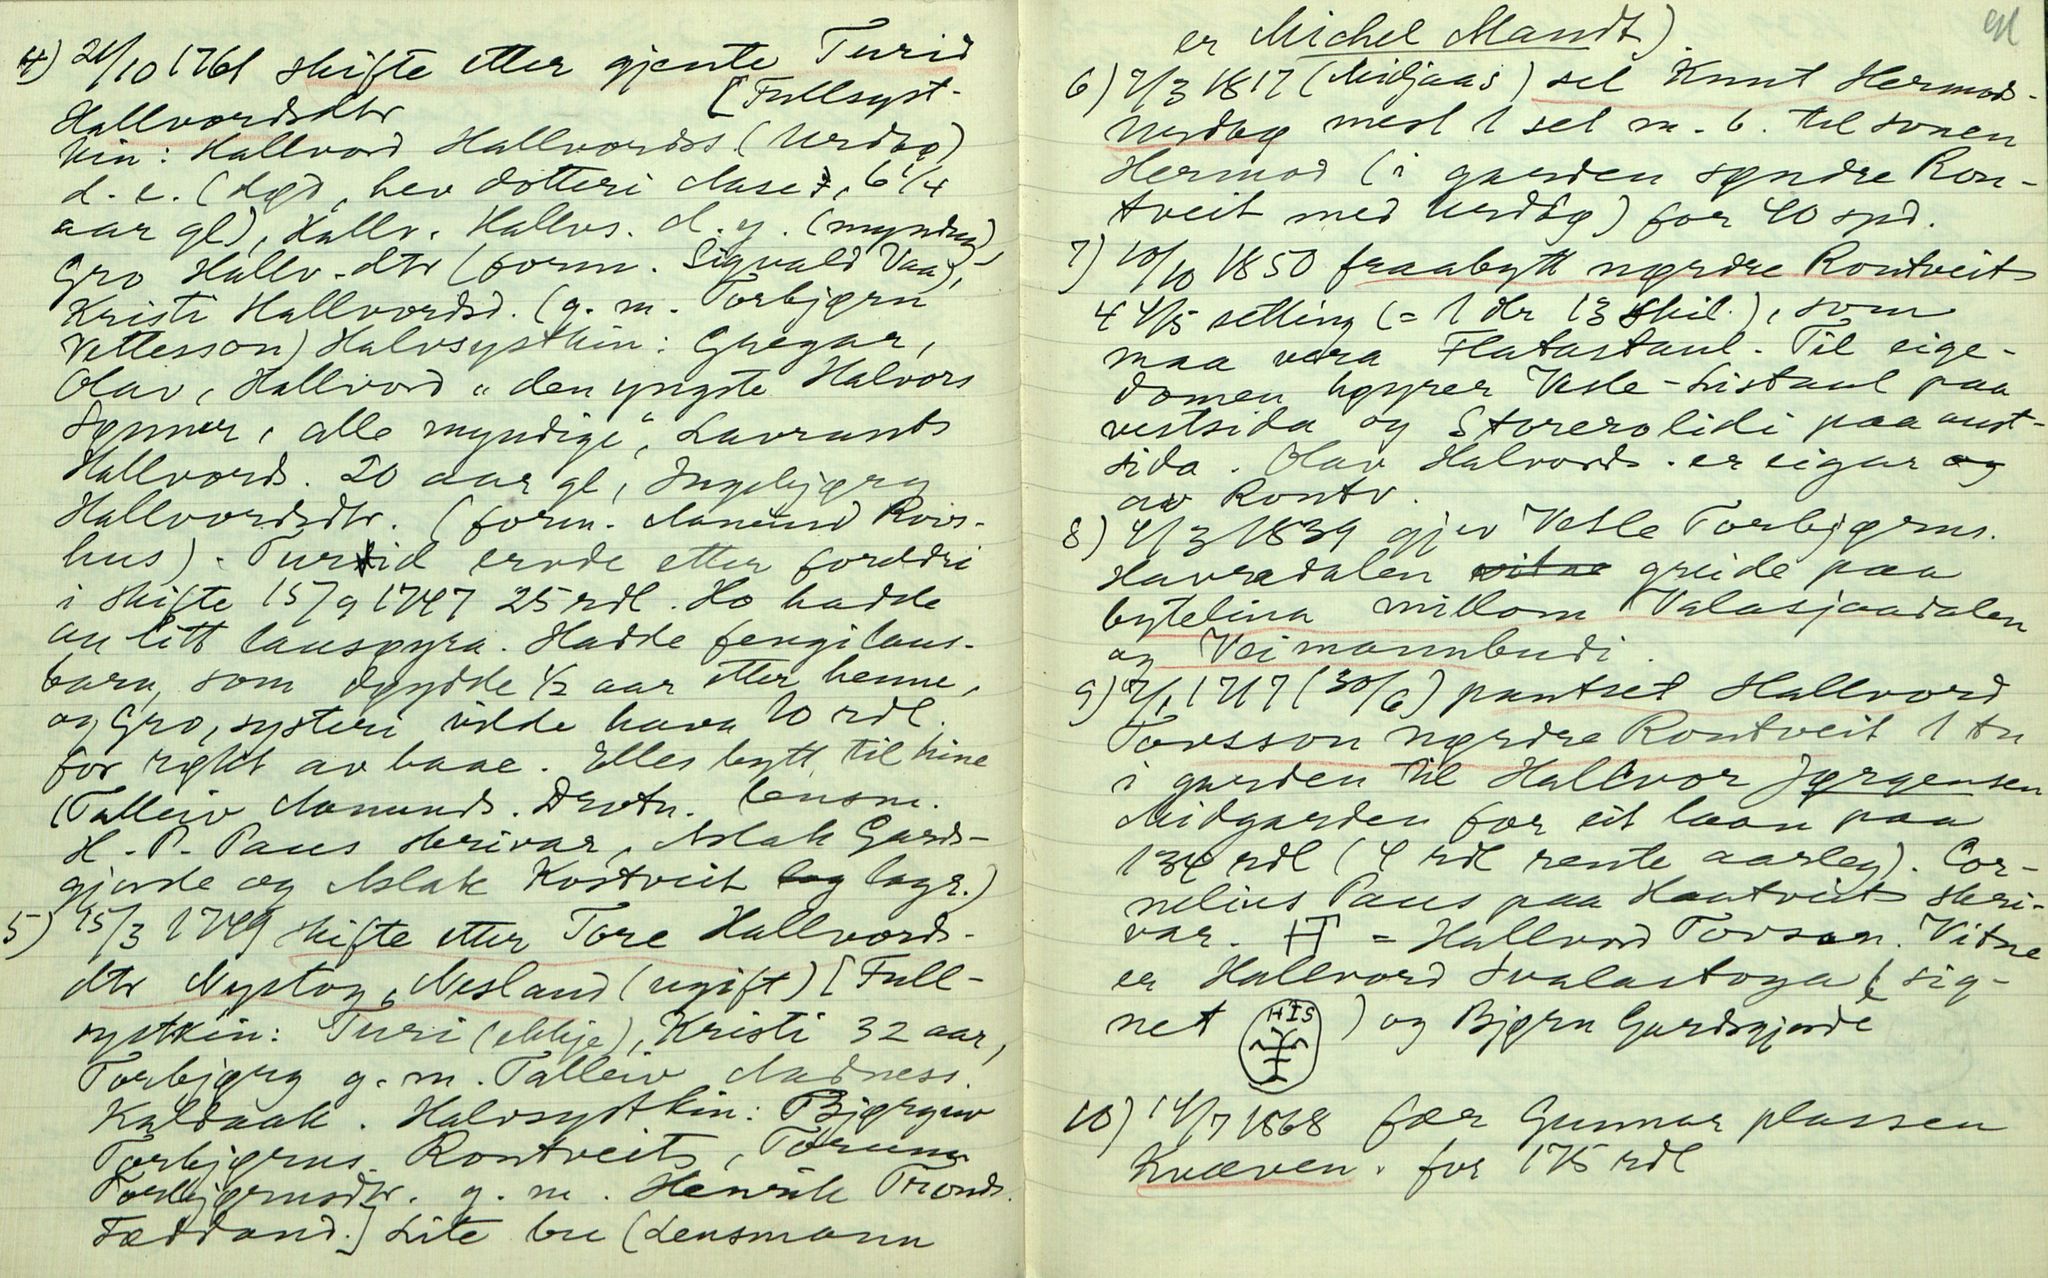 4) 21/10 1761 skifte etter gjente Turid
Hallvordsdtr [Fullsyst-
kin: Hallvord Hallvordss (Urdbø)
d. e. (død, hev dotteri Aase, 6 1/4
aar gl), Hallv. Hallvs. d. y. (myndug),
Gro Hallv.dtr (form. Sigvald Vaa),
Kristi Hallvordsd. (g. m. Torbjørn
Vettesson) Halvsystkin: Gregar,
Olav, Hallvord "den yngste Halvors
Sønner, alle myndige", Lavrants
Hallvords. 20 aar gl, Ingebjørg
Hallvordsdtr. (form. Aamund Rois-
hus). Turid ervde etter foreldri
i skifte 15/9 1747 25 rdl. Ho hadde
au litt lausøyra. Hadde fengi laus-
barn, som døydde 1/2 aar etter henne,
og Gro, systeri vilde hava 10 rdl.
for røkt av baae. Elles bytt til hine
(Talleiv Aamunds. Drotn. lensm.
H. P. Paus skrivar, Aslak Gards-
gjorde og Aslak Kostveit lagr.)
5) 15/3 1749 skifte etter Tore Hallvords-
dtr Nystog, Nesland (ugift) [Full-
systkin: Turi (ekkje), Kristi 32 aar,
Torbjørg g. m. Talleiv Aadness.
Kaldaak. Halvsystkin: Bjørguv
Torbjørns. Rontveit, Torunn
Torbjørnsdtr. g. m. Henrik Tronds.
Fæddand.] Lite bu (Lensmann
er Michel Mandt).
6) 7/3 1817 (Midjaas) sel Knut Hermods-
Urdbø med 1 sel m. 6. til sonen
Hermod (i garden søndre Ron-
tveit med Urdbø) for 40 spd.
7) 10/10 1850 fraabytt nørdre Rontveit
4 4/5 setting (= 1 dr 13 skil.), som
maa vera Flatastaul. Til eige-
domen høyrer Vesle-Listaul paa
vestsida og Storerolidi paa aust-
sida. Olav Halvords. er eigar og
av Rontv.
8) 4/3 1839 gjev Vetle Torbjørns.
Havradalen vitne greide paa
bytelina millom Valasjaadalen
og Veimannbudi.
9) 7/1 1717 (30/6) pantset Hallvord
Tovsson nørdre Rontveit 1 tn
i garden til Hallvor Jørgensen
Midgarden for eit laan paa
134 rdl (4 rdl rente aarleg). Cor-
nelius Paus paa Hantveit skri-
var. HT = Hallvord Tovson. Vitne
er Hallvord Svalastoga (sig-
net HIS ) og Bjørn Gardsgjorde
10) 14/7 1868 fær Gunnar plassen
Kvæven. for 175 rdl